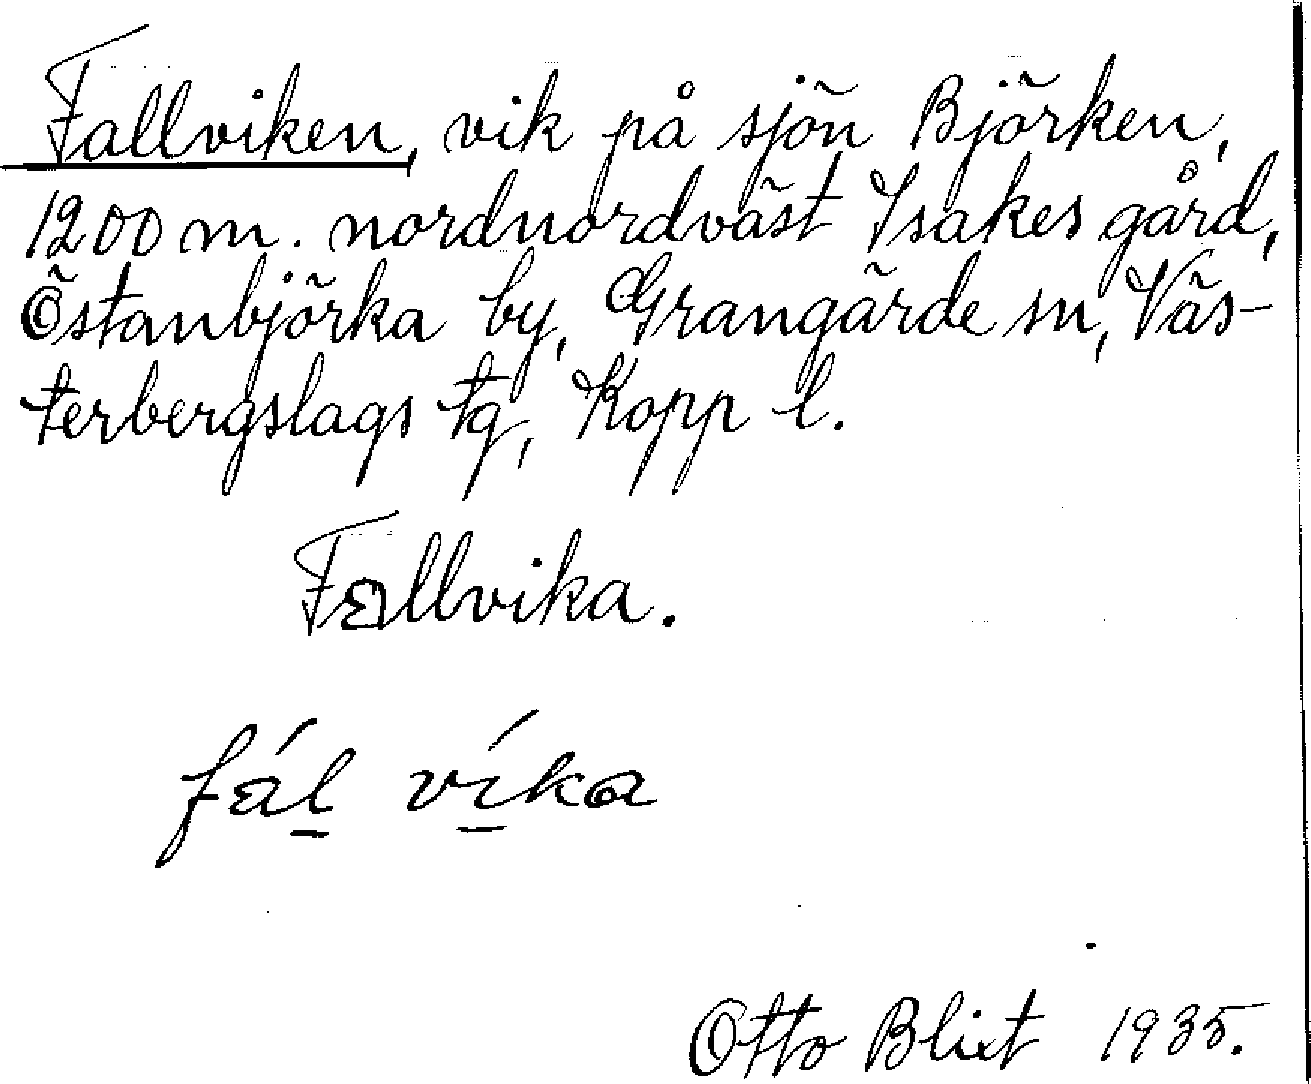 Fallviken, vik på sjön Björken,
1200 m. nordnordväst Isakes gård,
Östanbjörka by, Grangärde sn, Väs-
terbergslags tg, Kopp l.
Fallvika.
fál víka
Otto Blixt 1935.